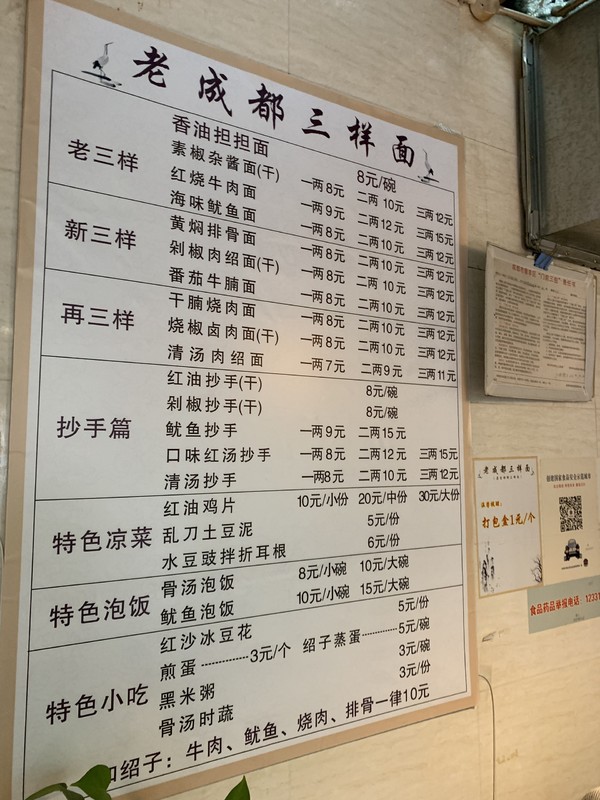 老成都三样面
老三样
香油担担面 8元/碗
素椒杂酱面(干) 一两8元 二两10元 三两12元
红烧牛肉面 一两9元 二两12元 三两15元
新三样
海味鱿鱼面 一两8元 二两10元 三两12元
黄焖排骨面 一两8元 二两10元 三两12元
剁椒肉绍面(干) 一两8元 二两10元 三两12元
再三样
番茄牛腩面 一两8元 二两10元 三两12元
干腩烧肉面 一两8元 二两10元 三两12元
烧椒卤肉面(干) 一两8元 二两10元 三两12元
清汤肉绍面 一两7元 二两9元 三两11元
抄手篇
红油抄手(干) 8元/碗
剁椒抄手(干) 8元/碗
鱿鱼抄手 一两9元 二两15元
口味红汤抄手 一两8元 二两12元 三两15元
清汤抄手 一两8元 二两10元 三两12元
特色凉菜
红油鸡片 10元/小份 20元/中份 30元/大份
乱刀土豆泥 5元/份
水豆豉拌折耳根 6元/份
特色泡饭
骨汤泡饭 8元/小碗 10元/大碗
鱿鱼泡饭 10元/小碗 15元/大碗
特色小吃
红沙冰豆花 5元/份
煎蛋------------3元/个 绍子蒸蛋------------5元/碗
黑米粥 3元/碗
骨汤时蔬 3元/份
加绍子：牛肉、鱿鱼、烧肉、排骨一律10元
老成都三样面
打包盒1元/个
食品药品举报电话：12331